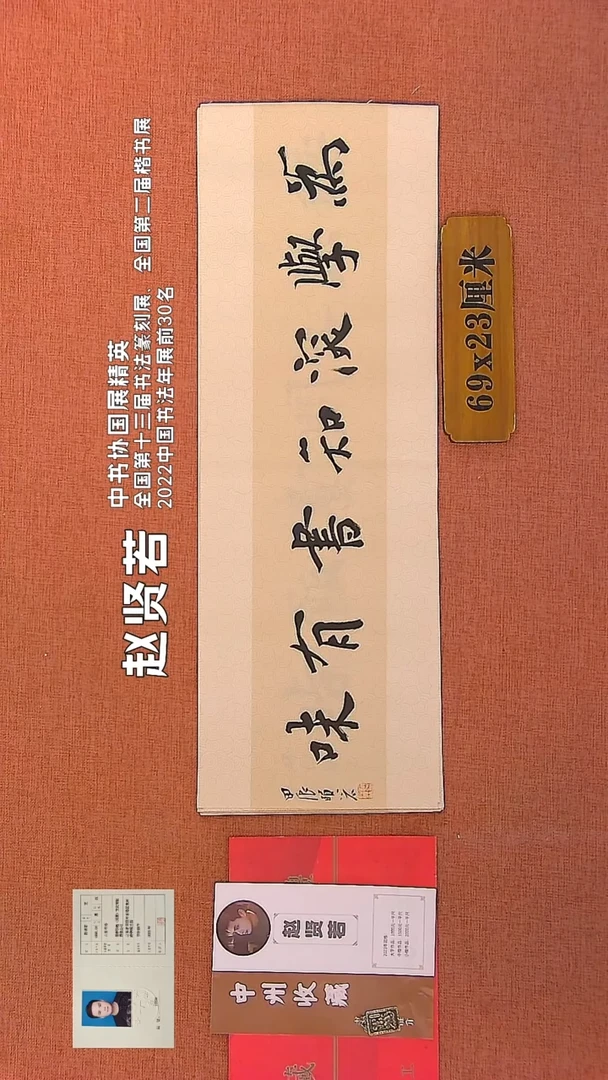 赵贤若
中书协国展精英
全国第十三届书法篆刻展、全国第二届楷书展
2022中国书法年展前30名
為學深知書有味
69x23厘米
赵贤若
中州收藏